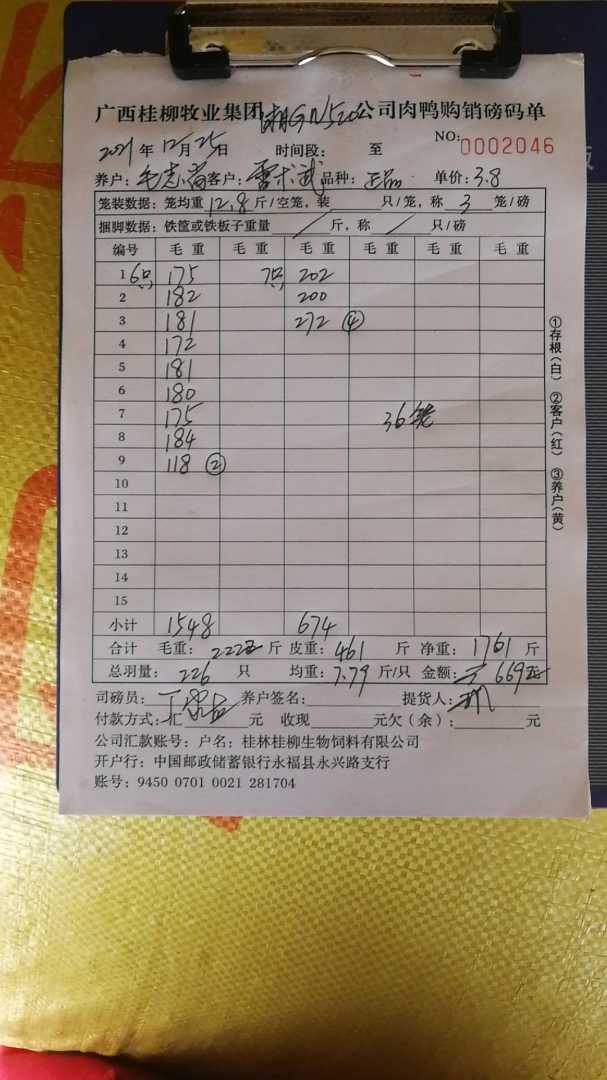 广西桂柳牧业集团 湘GN520 公司肉鸭购销磅码单
2021年12月25日 时间段: 至 NO: 0002046
养户: 客户: 品种: 正品 单价: 3.8
笼装数据: 笼均重12.8斤/空笼, 装 只/笼, 称 3 笼/磅
捆脚数据: 铁筐或铁板子重量 / 斤, 称 / 只/磅
编号 毛重 毛重 毛重 毛重 毛重 毛重
1 6只 175 7只 202
2 182 200
3 181 272 ④
4 172
5 181
6 180
7 175 36笼
8 184
9 118 ②
10
11
12
13
14
15
小计 1548 674
合计 毛重: 2222 斤 皮重: 461 斤 净重: 1761 斤
总羽量: 226 只 均重: 7.79 斤/只 金额: 669
司磅员: 养户签名: 提货人:
付款方式: 汇 元 收现 元欠(余): 元
公司汇款账号: 户名: 桂林桂柳生物饲料有限公司
开户行: 中国邮政储蓄银行永福县永兴路支行
账号: 9450 0701 0021 281704
①存根(白) ②客户(红) ③养户(黄)
版